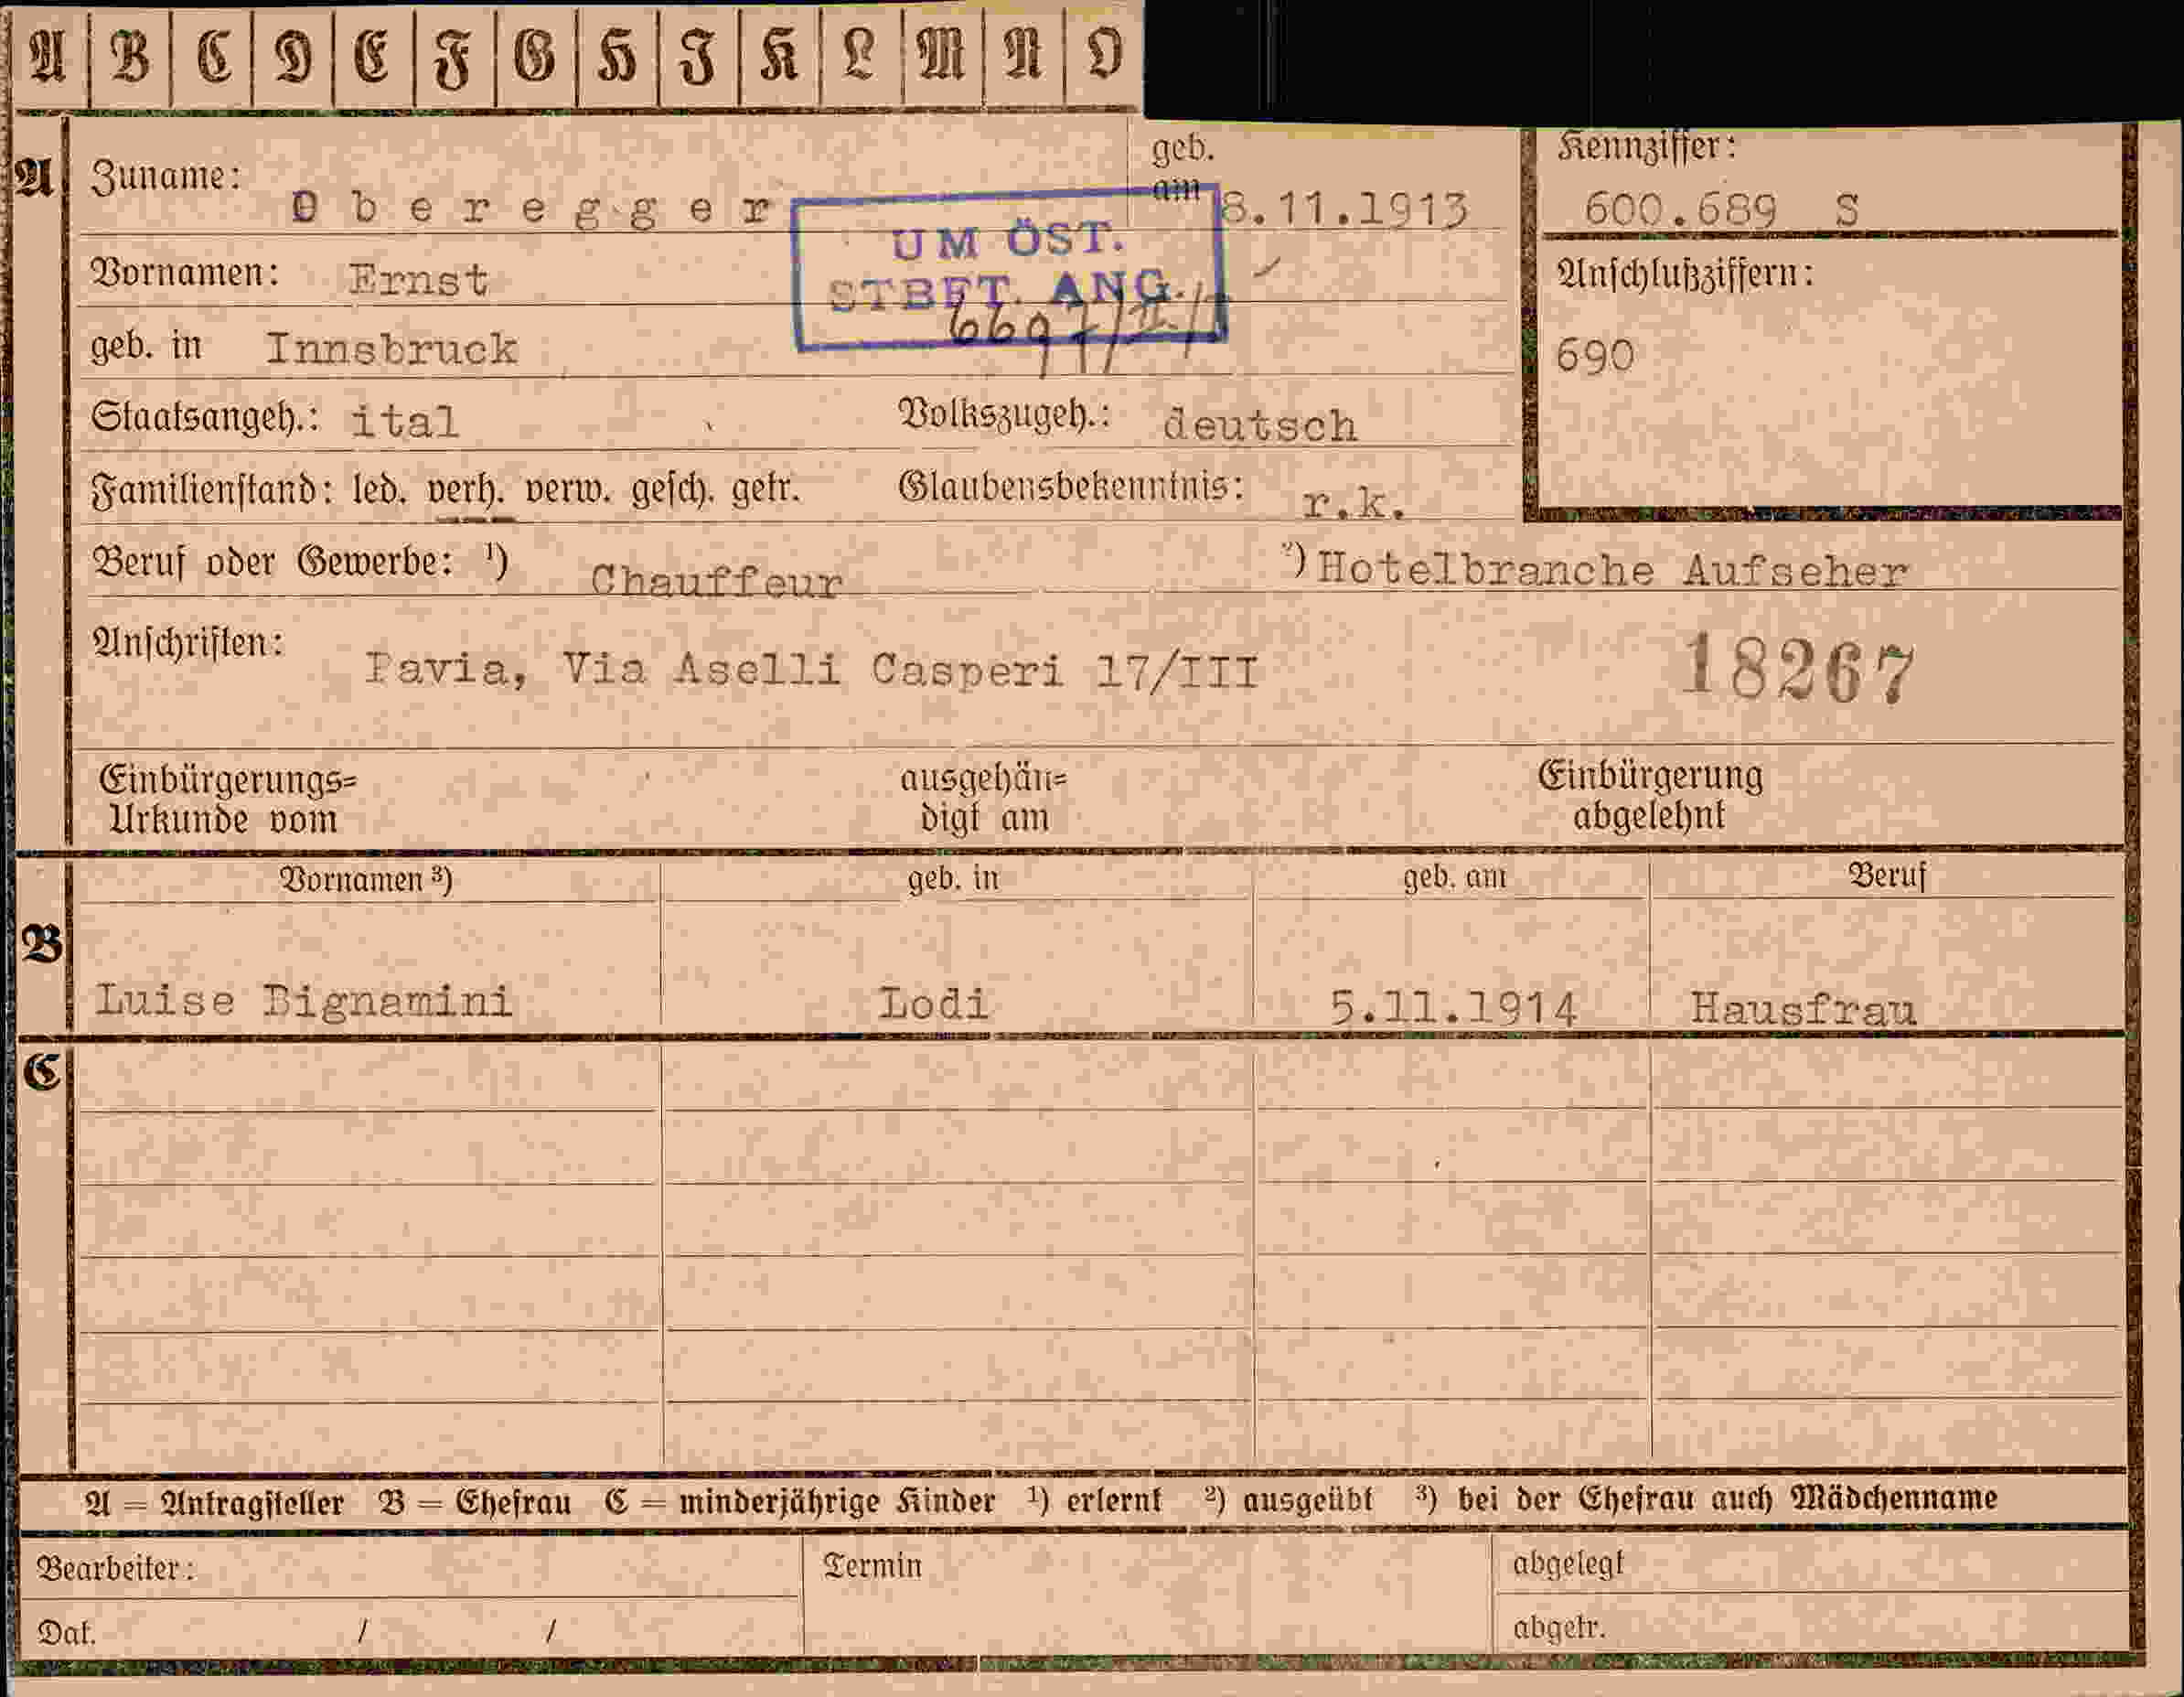 A B C D E F G H I K L M N O
A Zuname: Oberegger geb. am 8.11.1913 Kennziffer: 600.689 S
UM ÖST.
STBFT. ANG.
Vornamen: Ernst
Anschlußziffern:
geb. in Innsbruck
690
Staatsangeh.: ital Volkszugeh.: deutsch
Familienstand: led. verh. verw. gesch. getr. Glaubensbekenntnis: r.k.
Beruf oder Gewerbe: ¹) Chauffeur ²) Hotelbranche Aufseher
Anschriften: Pavia, Via Aselli Casperi 17/III 18267
Einbürgerungs= ausgehän= Einbürgerung
Urkunde vom digt am abgelehnt
Vornamen ³) geb. in geb. am Beruf
B
Luise Bignamini Lodi 5.11.1914 Hausfrau
C
A = Antragsteller B = Ehefrau C = minderjährige Kinder ¹) erlernt ²) ausgeübt ³) bei der Ehefrau auch Mädchenname
Bearbeiter: Termin abgelegt
Dat. / / abgetr.